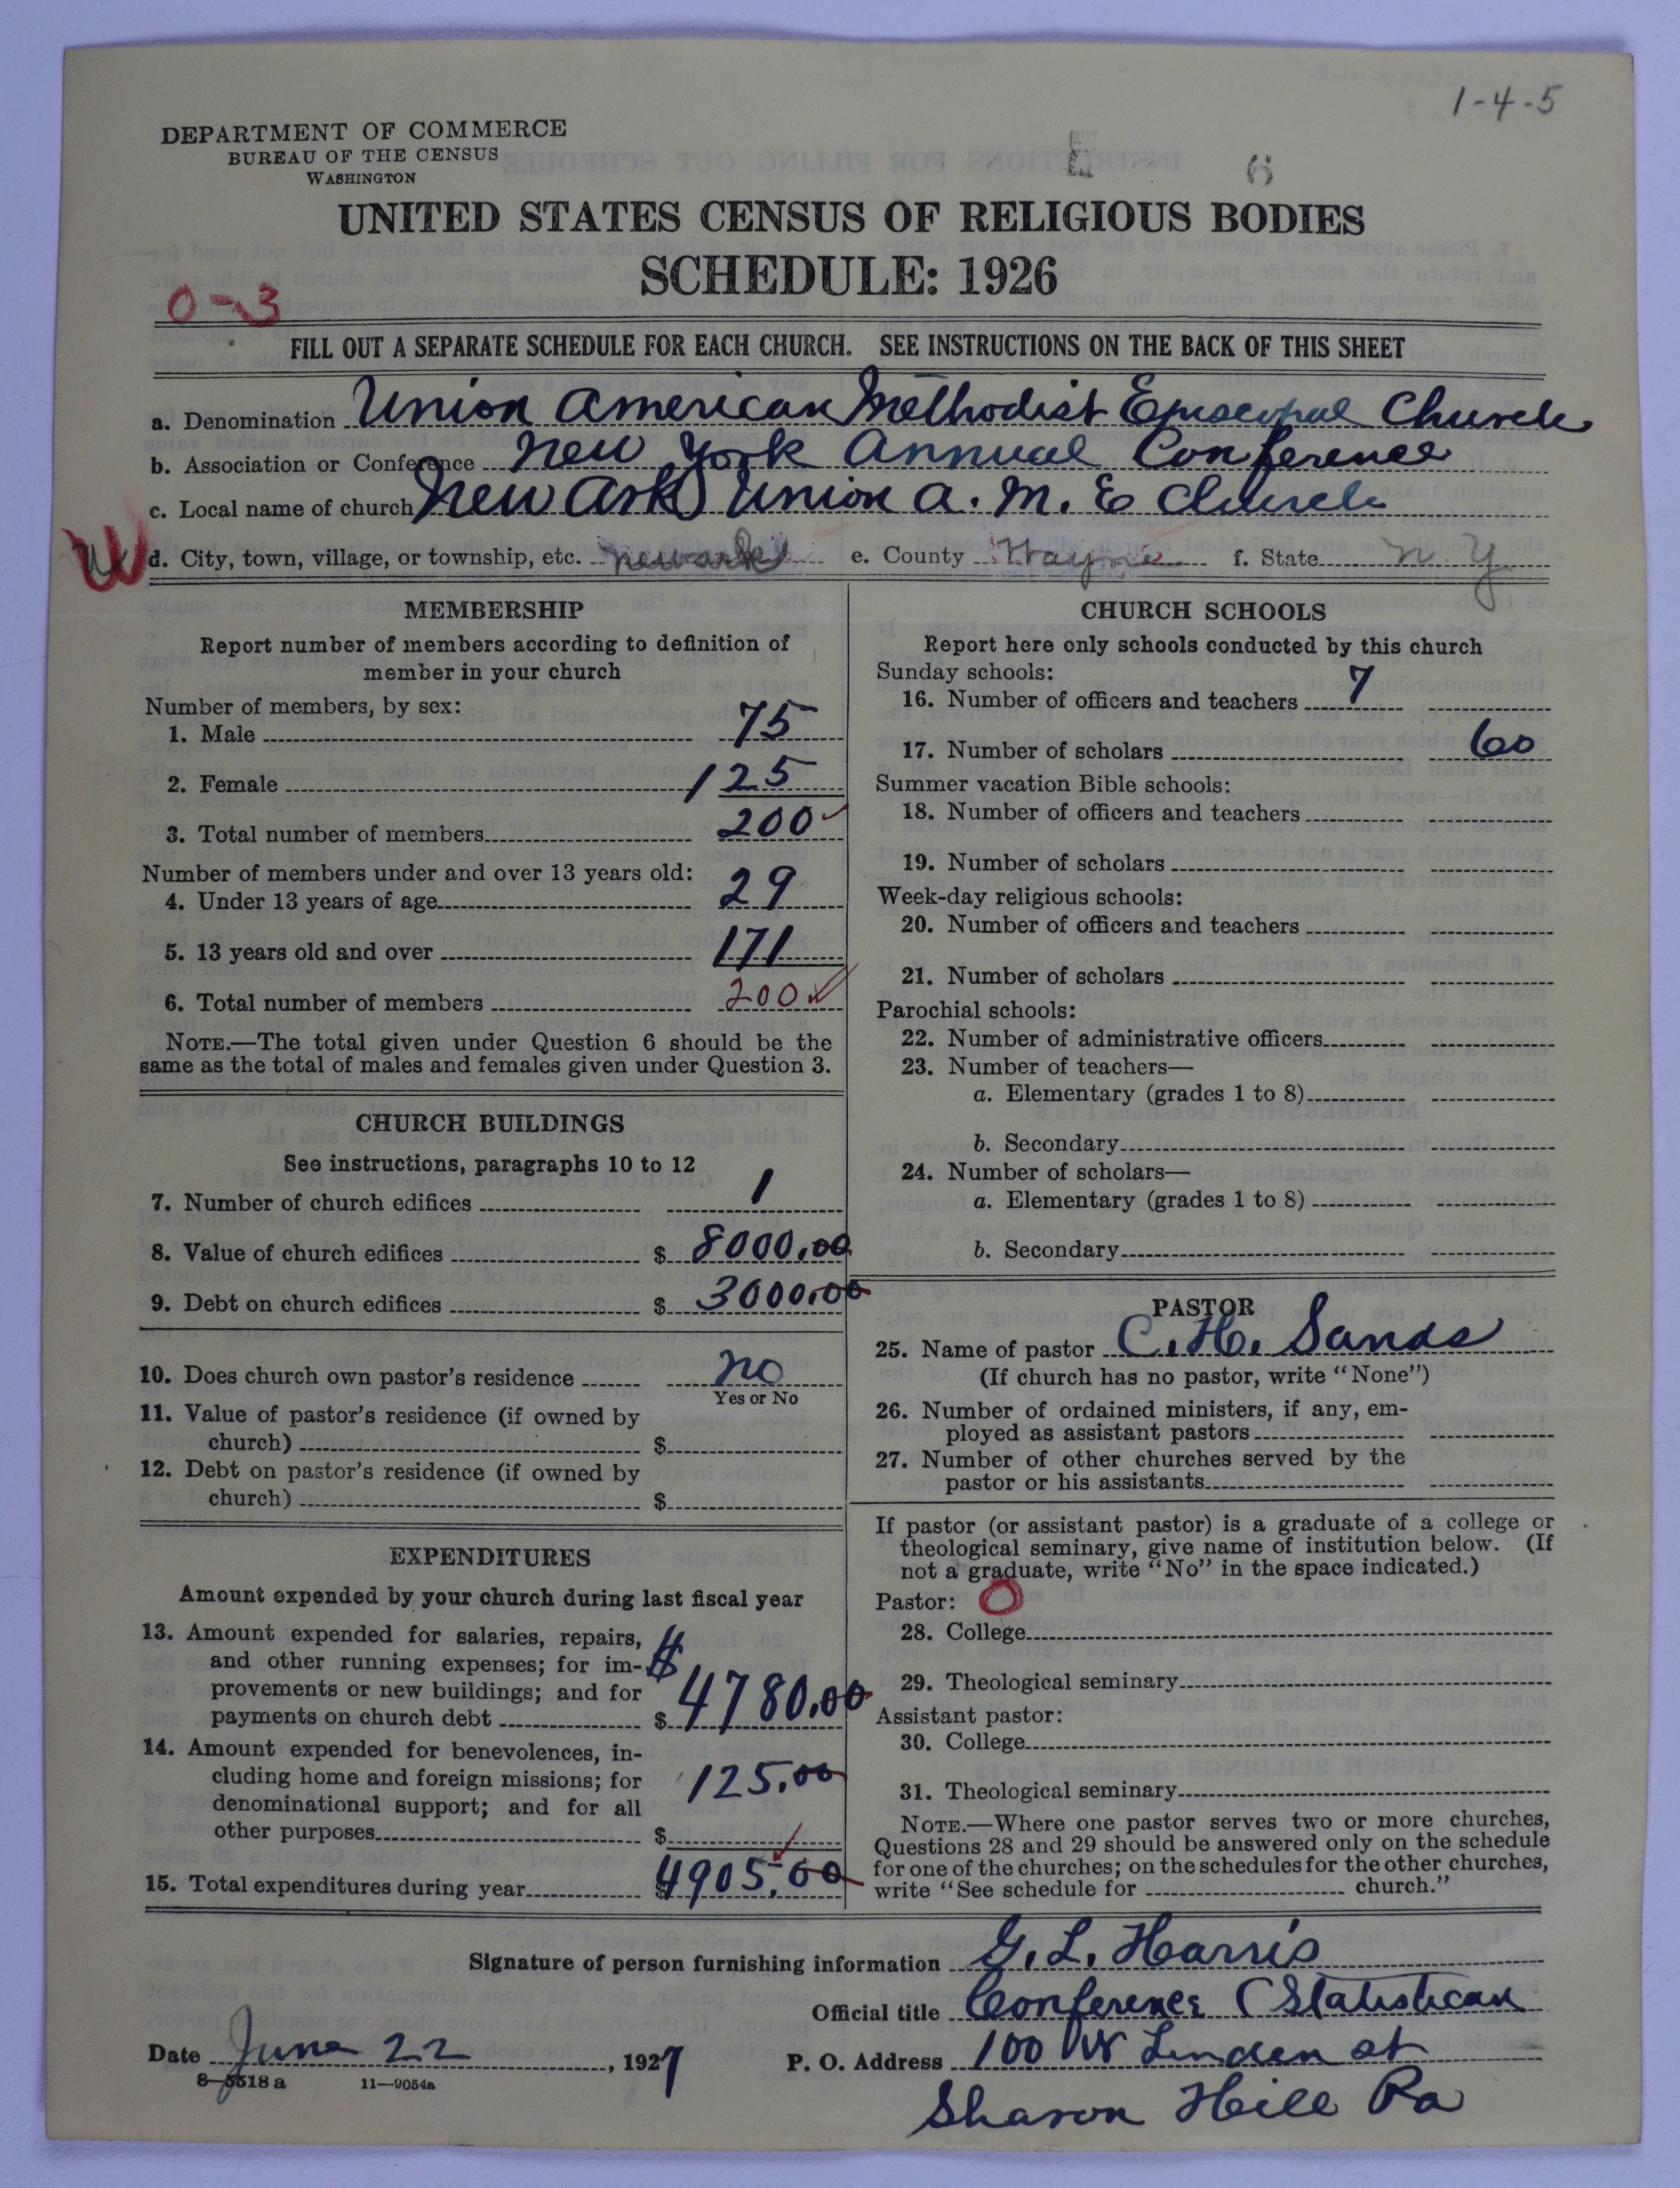 1-4-5
DEPARTMENT OF COMMERCE
BUREAU OF THE CENSUS
WASHINGTON
UNITED STATES CENSUS OF RELIGIOUS BODIES
SCHEDULE: 1926
0-3
FILL OUT A SEPARATE SCHEDULE FOR EACH CHURCH. SEE INSTRUCTIONS ON THE BACK OF THIS SHEET
a. Denomination Union American Methodist Episcopal Church
b. Association or Conference New York Annual Conference
c. Local name of church New Ark Union A. M. E Church
W d. City, town, village, or township, etc. Newark e. County Wayne f. State N. Y
MEMBERSHIP
Report number of members according to definition of
member in your church
Number of members, by sex:
1. Male 75
2. Female 125
3. Total number of members 200
Number of members under and over 13 years old:
4. Under 13 years of age 29
5. 13 years old and over 171
6. Total number of members 200
NOTE.—The total given under Question 6 should be the
same as the total of males and females given under Question 3.
CHURCH BUILDINGS
See instructions, paragraphs 10 to 12
7. Number of church edifices 1
8. Value of church edifices $ 8000.00
9. Debt on church edifices $ 3000.00
10. Does church own pastor's residence No
Yes or No
11. Value of pastor's residence (if owned by
church) $
12. Debt on pastor's residence (if owned by
church) $
EXPENDITURES
Amount expended by your church during last fiscal year
13. Amount expended for salaries, repairs,
and other running expenses; for im- $
provements or new buildings; and for
payments on church debt $ 4780.00
14. Amount expended for benevolences, in-
cluding home and foreign missions; for 125.00
denominational support; and for all
other purposes $
15. Total expenditures during year $ 4905.00
CHURCH SCHOOLS
Report here only schools conducted by this church
Sunday schools:
16. Number of officers and teachers 7
17. Number of scholars 60
Summer vacation Bible schools:
18. Number of officers and teachers
19. Number of scholars
Week-day religious schools:
20. Number of officers and teachers
21. Number of scholars
Parochial schools:
22. Number of administrative officers
23. Number of teachers—
a. Elementary (grades 1 to 8)
b. Secondary
24. Number of scholars—
a. Elementary (grades 1 to 8)
b. Secondary
PASTOR
25. Name of pastor C. H. Sands
(If church has no pastor, write "None")
26. Number of ordained ministers, if any, em-
ployed as assistant pastors
27. Number of other churches served by the
pastor or his assistants
If pastor (or assistant pastor) is a graduate of a college or
theological seminary, give name of institution below. (If
not a graduate, write "No" in the space indicated.)
Pastor: 0
28. College
29. Theological seminary
Assistant pastor:
30. College
31. Theological seminary
NOTE.—Where one pastor serves two or more churches,
Questions 28 and 29 should be answered only on the schedule
for one of the churches; on the schedules for the other churches,
write "See schedule for church."
Signature of person furnishing information G. L. Harris
Official title Conference Statistican
Date June 22, 1927 P. O. Address 100 W Linden st
8-5518 a 11-9054a
Sharon Hill Pa